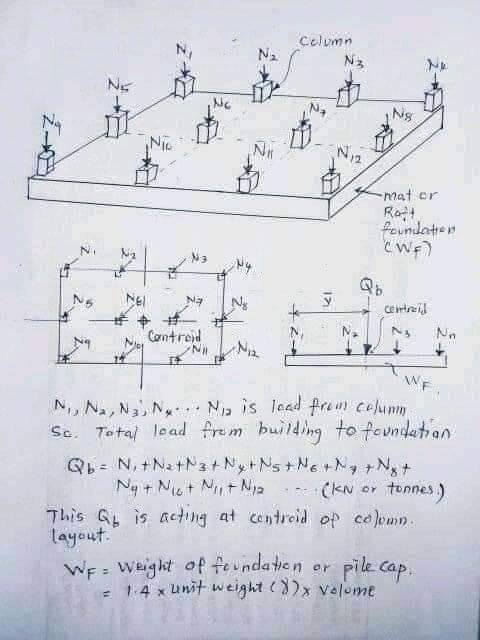 Column
N1 N2 N3 N4
N5 N6 N7 N8
N9 N10 N11 N12
mat or
Raft
foundation
(WF)
N1 N2 N3 N4
N5 N6 N7 N8
Centroid
N9 N10 N11 N12
Qb
ȳ
centroid
N1 N2 N3 Nn
WF
N1, N2, N3, N4... N12 is load from column
So. Total load from building to foundation
Qb = N1+N2+N3+N4+N5+N6+N7+N8+
N9+N10+N11+N12 .... (kN or tonnes.)
This Qb is acting at centroid of column
layout.
WF = Weight of foundation or pile cap.
= 1.4 x unit weight (γ) x volume